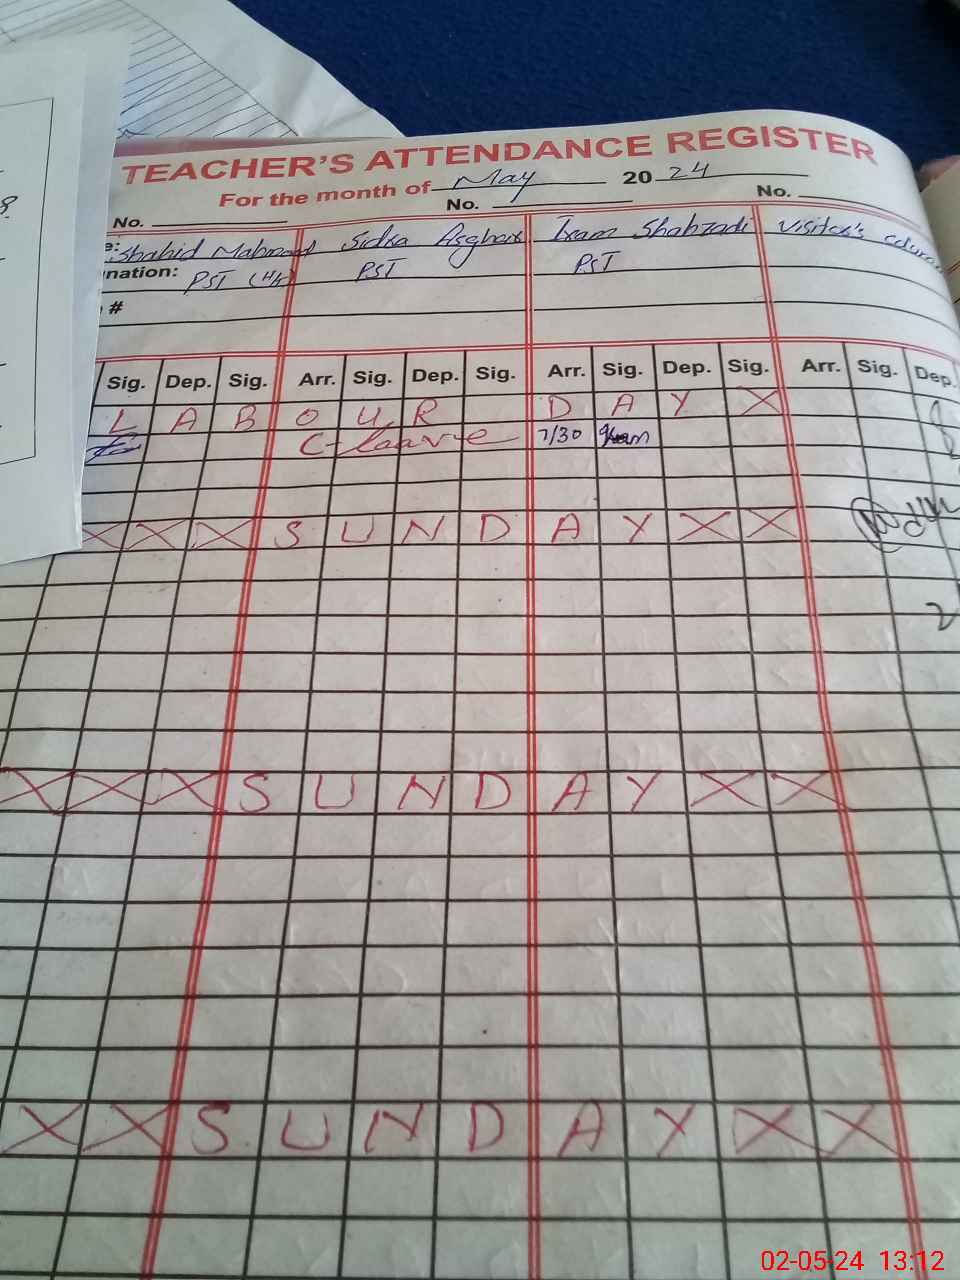 TEACHER'S ATTENDANCE REGISTER
For the month of May 2024
No. No. No.
e: Shahid Mahmood Sidra Asghar Iram Shahzadi Visitor's
nation: PST (H/t) PST PST
#
Sig. Dep. Sig. Arr. Sig. Dep. Sig. Arr. Sig. Dep. Sig. Arr. Sig. Dep.
L A B O U R D A Y X
C-leave 7/30 Iram
X X X S U N D A Y X X
2
X X X S U N D A Y X X
X X S U N D A Y X X
02-05-24 13:12